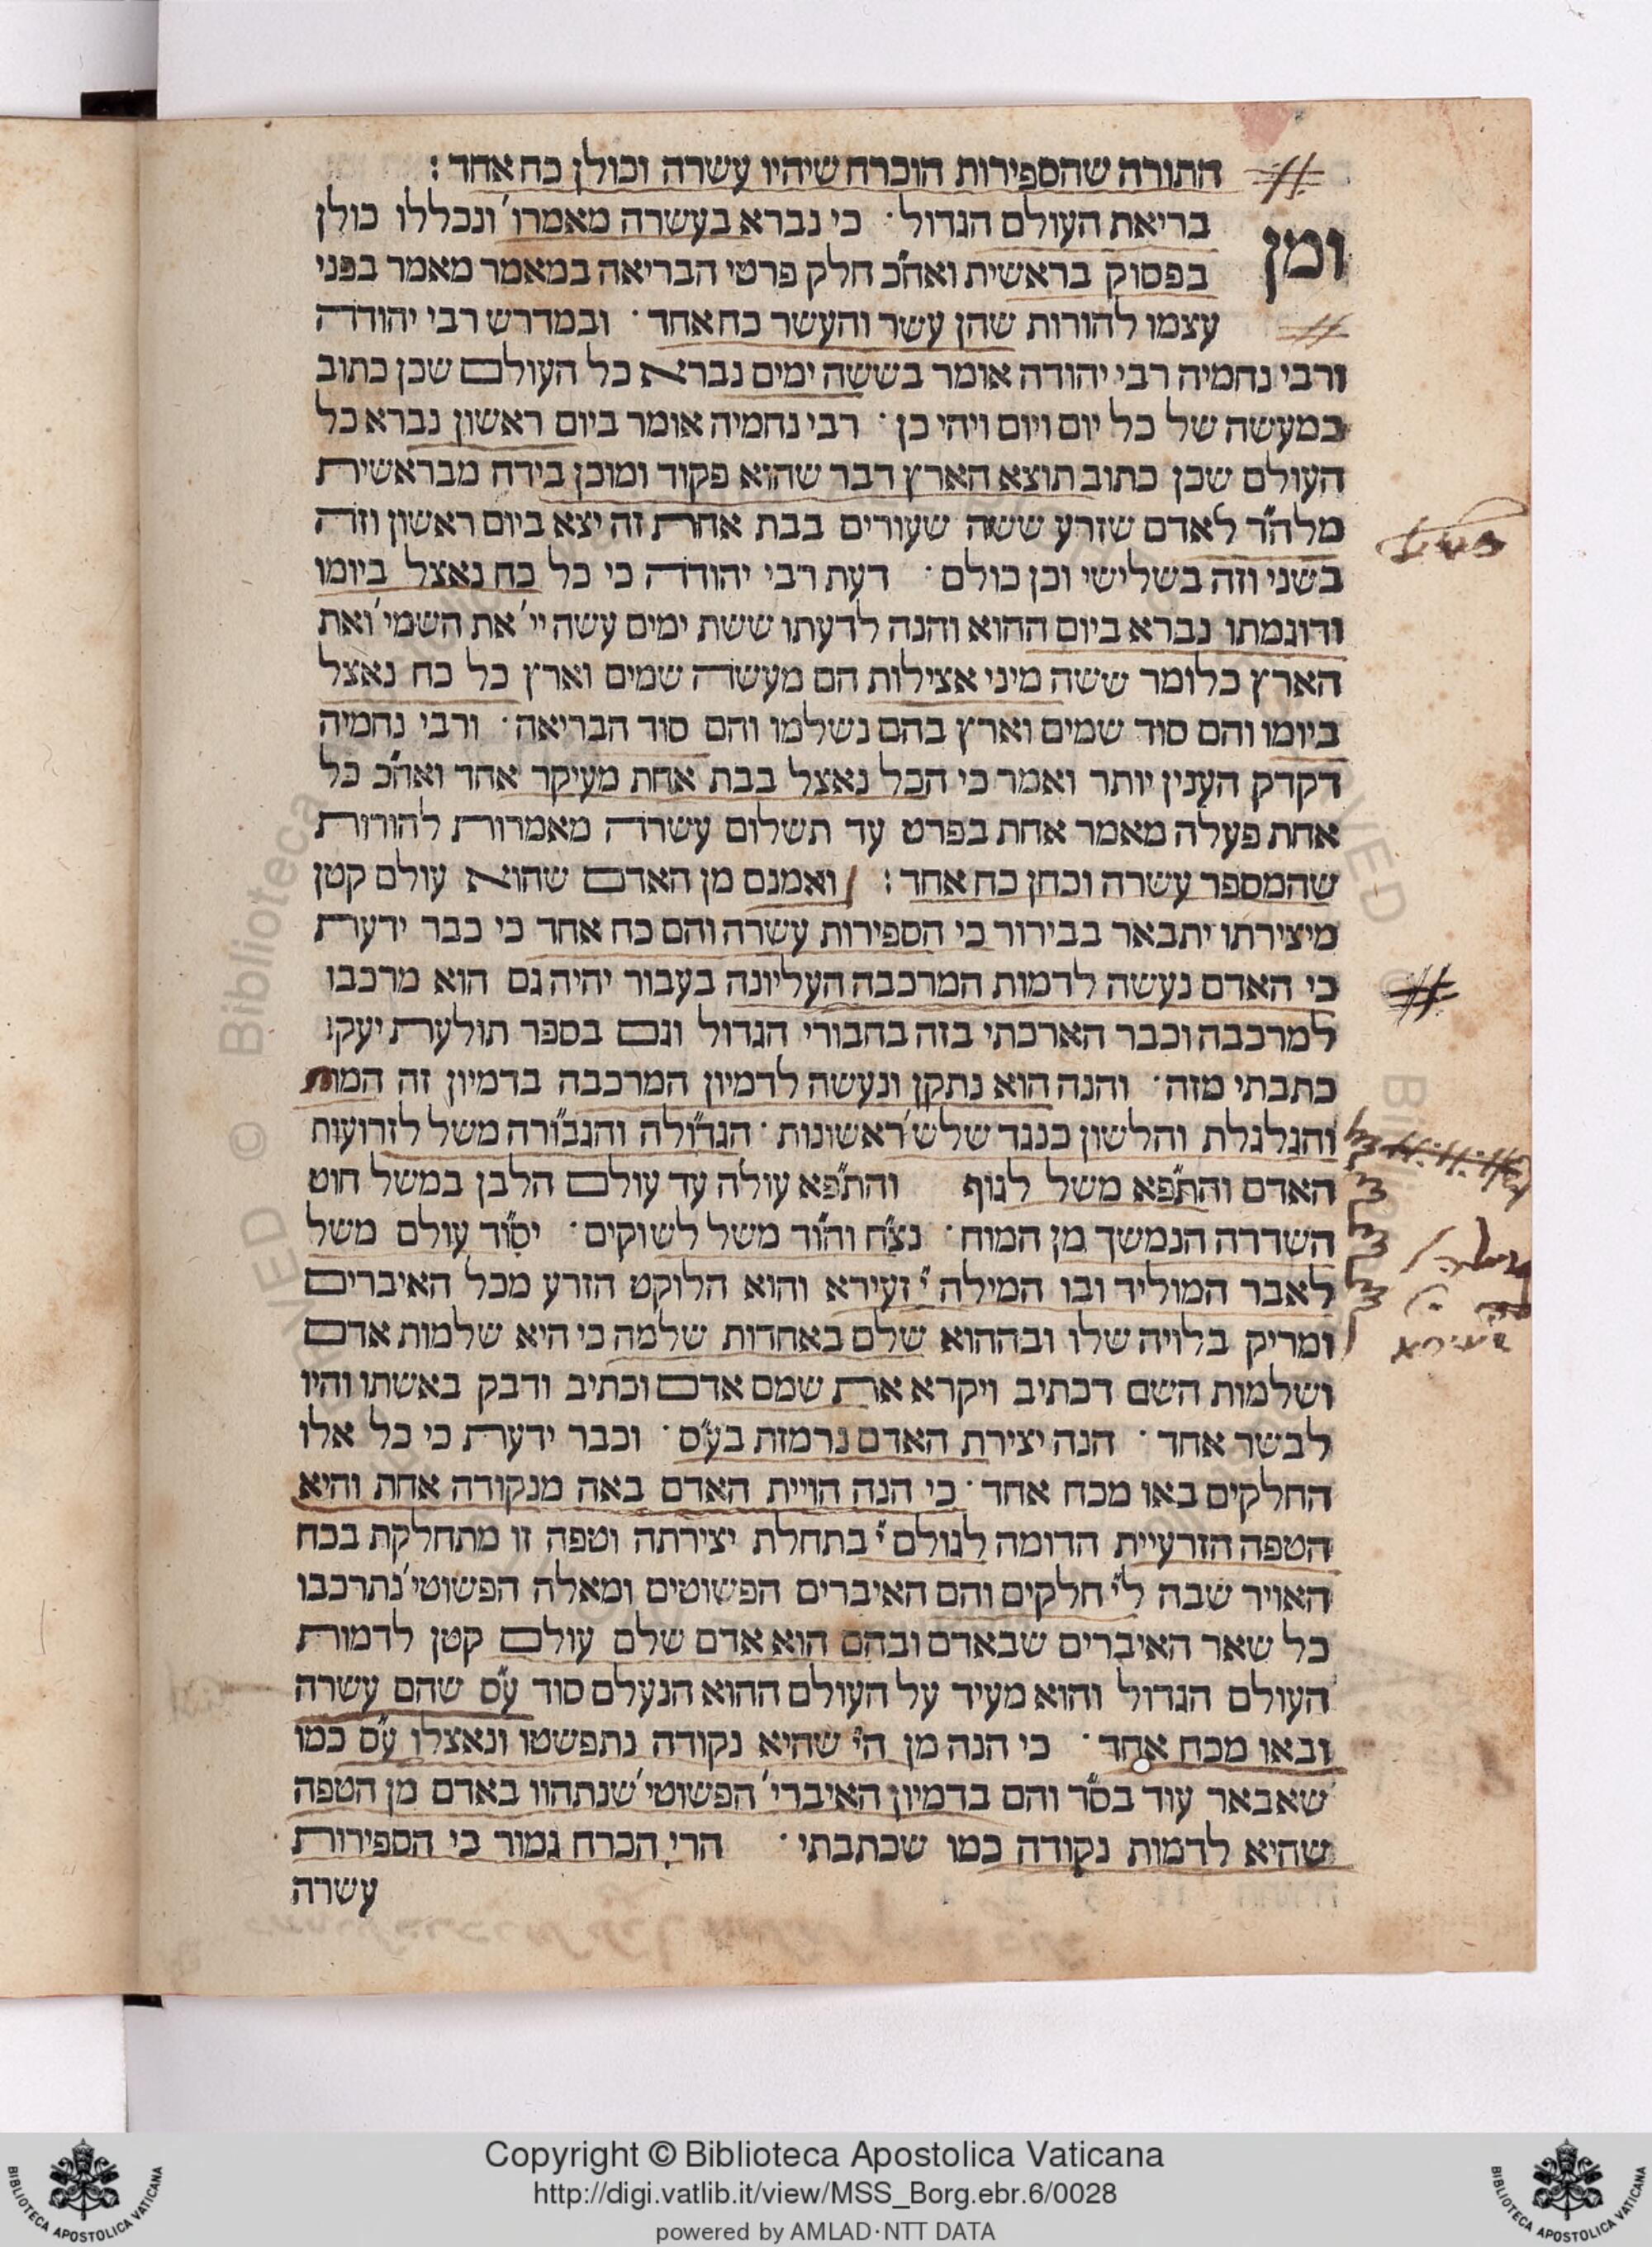 התורה שהספירות הוכרח שיהיו עשרה וכולן כח אחד :
ומן בריאת העולם הגדול · כי נברא בעשרה מאמרו' ונכללו כולן
בפסוק בראשית ואח"כ חלק פרטי הבריאה במאמר מאמר בפני
עצמו להורות שהן עשר והעשר כח אחד · ובמדרש רבי יהודה
ורבי נחמיה רבי יהודה אומר בששה ימים נברא כל העולם שכן כתוב
במעשה של כל יום ויום ויהי כן · רבי נחמיה אומר ביום ראשון נברא כל
העולם שכן כתוב תוצא הארץ דבר שהוא פקוד ומוכן בידה מבראשית
מלה"ד לאדם שזרע ששה שעורים בבת אחת זה יצא ביום ראשון וזה
בשני וזה בשלישי וכן כולם · דעת רבי יהודה כי כל כח נאצל ביומו
ודוגמתו נברא ביום ההוא והנה לדעתו ששת ימים עשה יי' את השמי' ואת
הארץ כלומר ששה מיני אצילות הם מעשה שמים וארץ כל כח נאצל
ביומו והם סוד שמים וארץ בהם נשלמו והם סוד הבריאה · ורבי נחמיה
דקדק הענין יותר ואמר כי הכל נאצל בבת אחת מעיקר אחד ואח"כ כל
אחת פעלה מאמר אחת בפרט עד תשלום עשרה מאמרות להורות
שהמספר עשרה וכחן כח אחד : ואמנם מן האדם שהוא עולם קטן
מיצירתו יתבאר בבירור כי הספירות עשרה והם כח אחד כי כבר ידעת
כי האדם נעשה לדמות המרכבה העליונה בעבור יהיה גם הוא מרכבו
למרכבה וכבר הארכתי בזה בחבורי הגדול וגם בספר תולעת יעקו
כתבתי מזה · והנה הוא נתקן ונעשה לדמיון המרכבה בדמיון זה המוח
והגלגלת והלשון כנגד שלש' ראשונות · הגדולה והגבורה משל לזרועות
האדם והת"פא משל לגוף והת"פא עולה עד עולם הלבן במשל חוט
השדרה הנמשך מן המוח · נצ"ח וה"וד משל לשוקים · יס"וד עולם משל
לאבר המוליד ובו המילה י' זעירא והוא הלוקט הזרע מכל האיברים
ומריק בלויה שלו ובההוא שלם באחדות שלמה כי היא שלמות אדם
ושלמות השם דכתיב ויקרא את שמם אדם וכתיב ודבק באשתו והיו
לבשר אחד · הנה יצירת האדם נרמזת בע"ס · וכבר ידעת כי כל אלו
החלקים באו מכח אחד · כי הנה הויית האדם באה מנקודה אחת והיא
הטפה הזרעיית הדומה לגולם י' בתחלת יצירתה וטפה זו מתחלקת בכח
האויר שבה לי' חלקים והם האיברים הפשוטים ומאלה הפשוטי' נתרכבו
כל שאר האיברים שבאדם ובהם הוא אדם שלם עולם קטן לדמות
העולם הגדול והוא מעיד על העולם ההוא הנעלם סוד ע"ס שהם עשרה
ובאו מכח אחד · כי הנה מן הי' שהיא נקודה נתפשטו ונאצלו ע"ס כמו
שאבאר עוד בס"ד והם בדמיון האיברי' הפשוטי' שנתהוו באדם מן הטפה
שהיא לדמות נקודה כמו שכתבתי · הרי הכרח גמור כי הספירות
עשרה
© Biblioteca
Copyright © Biblioteca Apostolica Vaticana
http://digi.vatlib.it/view/MSS_Borg.ebr.6/0028
powered by AMLAD·NTT DATA
BIBLIOTECA APOSTOLICA VATICANA
BIBLIOTECA APOSTOLICA VATICANA